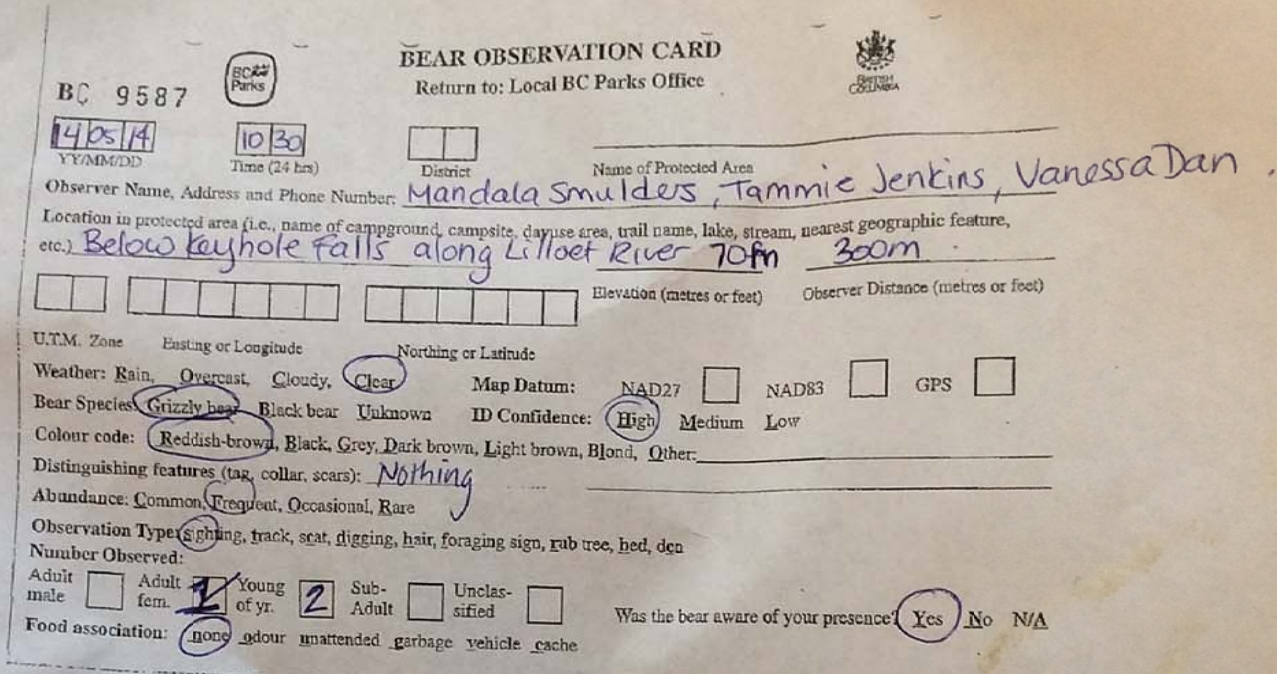 BEAR OBSERVATION CARD
Return to: Local BC Parks Office
BC Parks
BRITISH COLUMBIA
BC 9587
14 05 14 10 30
YY/MM/DD Time (24 hrs) District Name of Protected Area
Observer Name, Address and Phone Number: Mandala Smulders, Tammie Jenkins, Vanessa Dan.
Location in protected area (i.e., name of campground, campsite, dayuse area, trail name, lake, stream, nearest geographic feature,
etc.) Below Keyhole Falls along Lilloet River 300m
Elevation (metres or feet) Observer Distance (metres or feet)
U.T.M. Zone Easting or Longitude Northing or Latitude
Weather: Rain, Overcast, Cloudy, Clear Map Datum: NAD27 NAD83 GPS
Bear Species: Grizzly bear Black bear Unknown ID Confidence: High Medium Low
Colour code: Reddish-brown, Black, Grey, Dark brown, Light brown, Blond, Other:
Distinguishing features (tag, collar, scars): Nothing
Abundance: Common, Frequent, Occasional, Rare
Observation Type: sighting, track, scat, digging, hair, foraging sign, rub tree, bed, den
Number Observed:
Adult male Adult fem. 1 Young of yr. 2 Sub-Adult Unclassified Was the bear aware of your presence? Yes No N/A
Food association: none odour unattended garbage vehicle cache